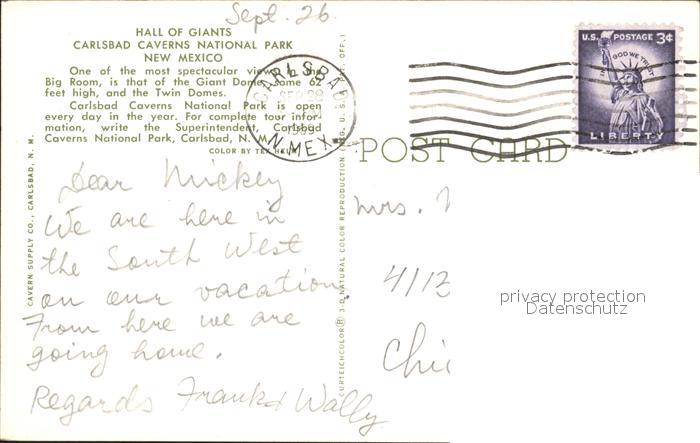 Sept. 26.
HALL OF GIANTS
CARLSBAD CAVERNS NATIONAL PARK
NEW MEXICO
One of the most spectacular views in the
Big Room, is that of the Giant Dome, some 62
feet high, and the Twin Domes.
Carlsbad Caverns National Park is open
every day in the year. For complete tour infor-
mation, write the Superintendent, Carlsbad
Caverns National Park, Carlsbad, N. M.
COLOR BY TEX HELM
CARLSBAD
SEP 28
N.MEX.
U.S. POSTAGE 3¢
IN GOD WE TRUST
LIBERTY
POST CARD
CAVERN SUPPLY CO., CARLSBAD, N. M.
CURTEICHCOLOR® 3-D NATURAL COLOR REPRODUCTION (REG. U.S.A. PAT. OFF.)
Dear Mickey
We are here in
the South West
on our vacation.
From here we are
going home.
Regards Frank & Wally
Mrs.
4113
Chi
privacy protection
Datenschutz